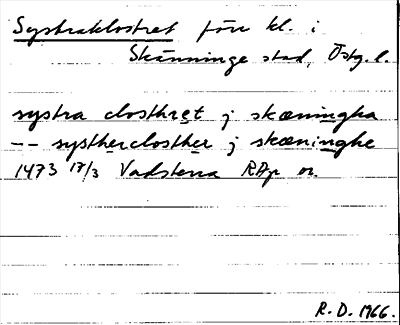 Systraklostret förr kl. i
Skänninge stad, Östg. l.
systra closthret j skæningha
-- systherclosther j skæninghe
1473 17/3 Vadstena RAp or.
R. D. 1966.